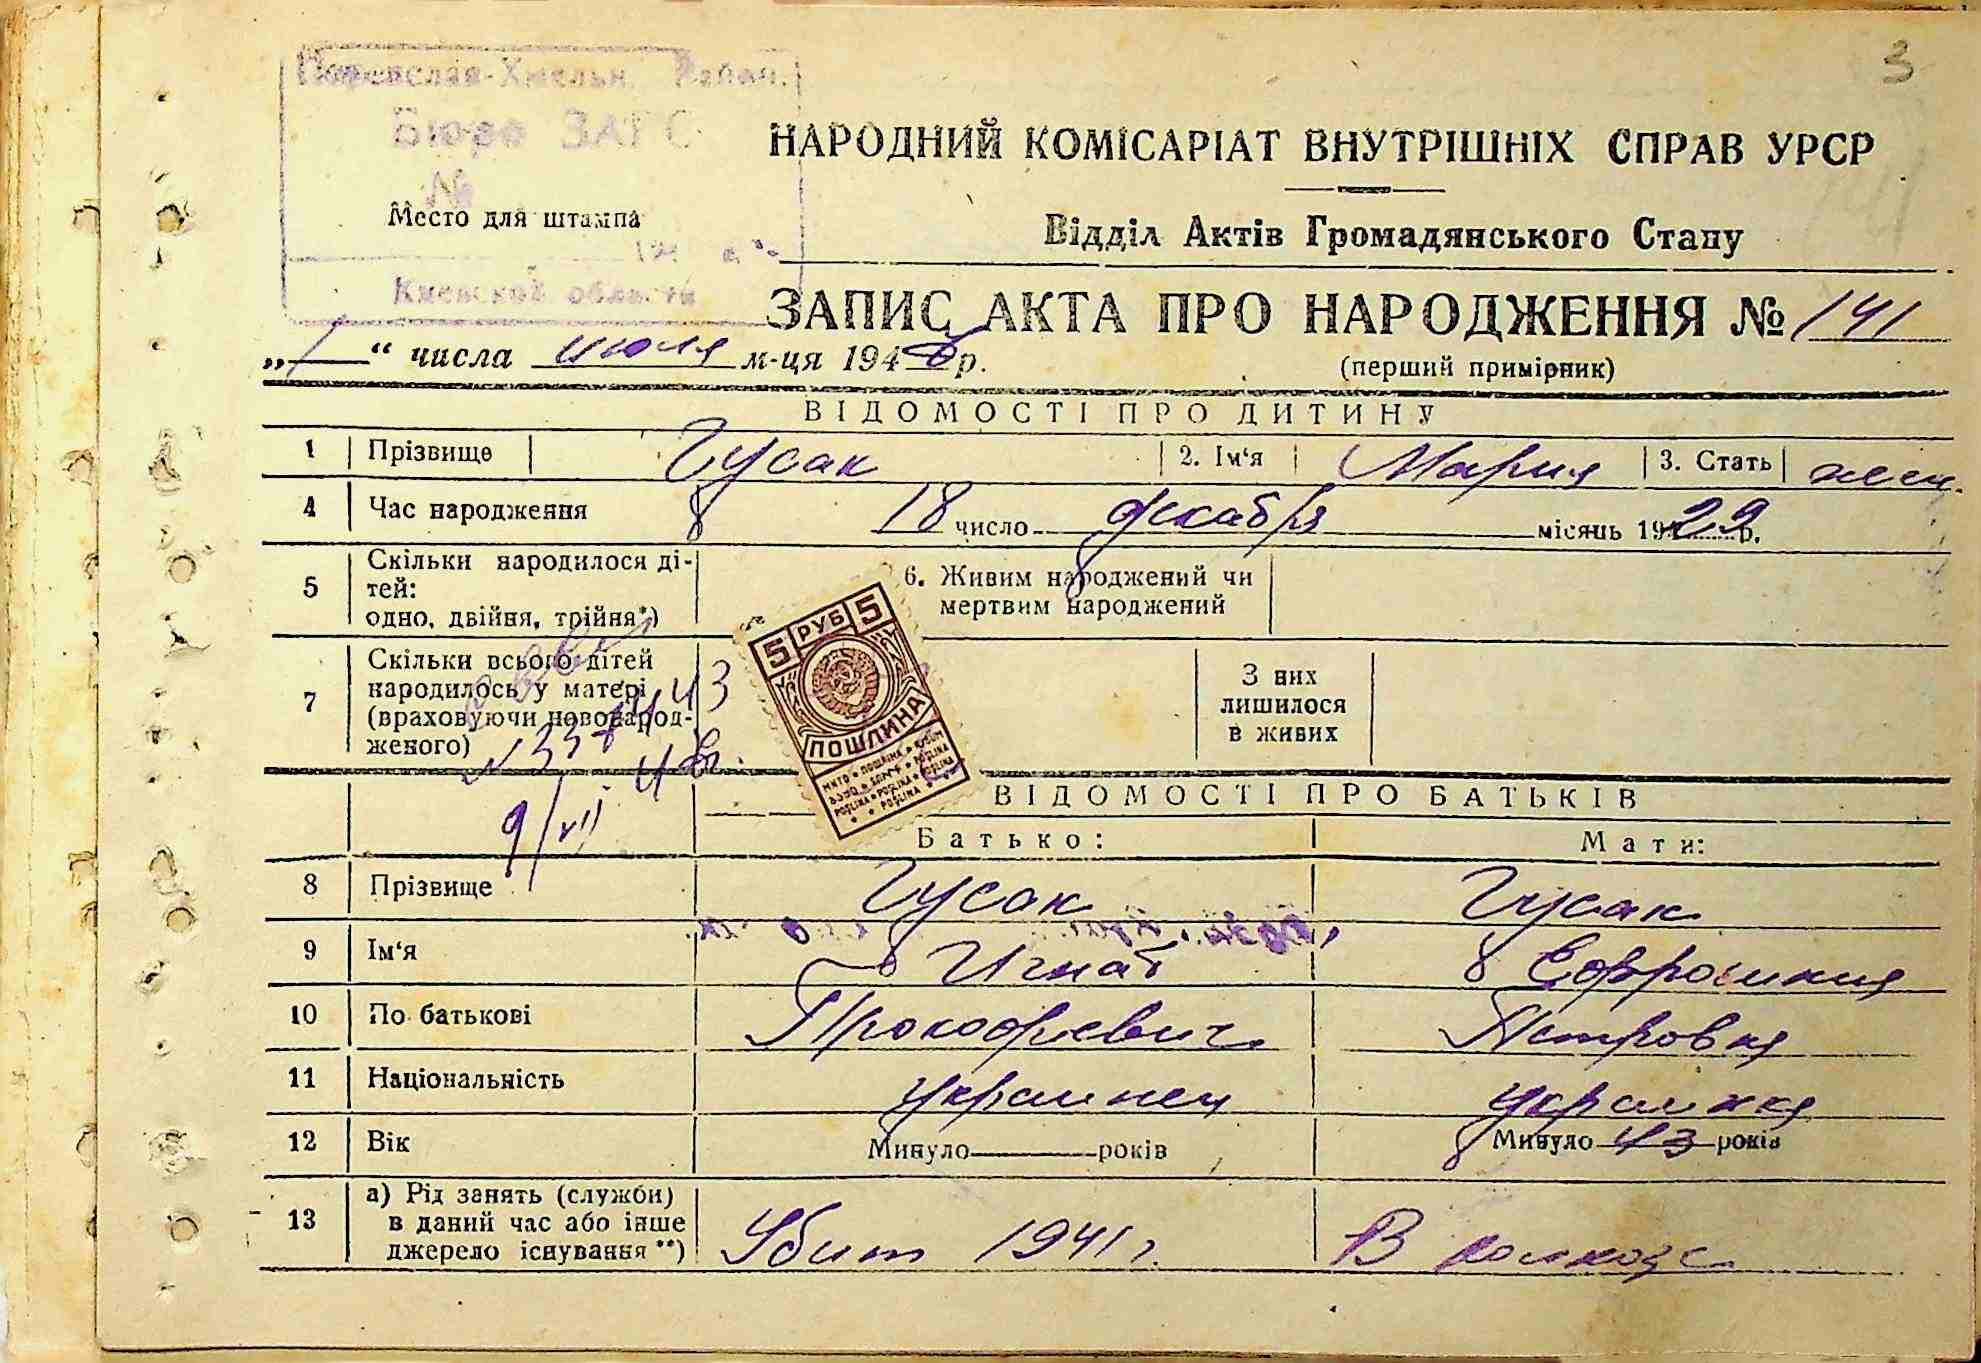 3
Переяслав-Хмельн. Район.
Бюро ЗАГС
№
Место для штампа
194
Киевской области
НАРОДНИЙ КОМІСАРІАТ ВНУТРІШНІХ СПРАВ УРСР
Відділ Актів Громадянського Стану
ЗАПИС АКТА ПРО НАРОДЖЕННЯ № 141
„1“ числа июля м-ця 1946 р.
(перший примірник)
ВІДОМОСТІ ПРО ДИТИНУ
1 Прізвище Гусак 2. Ім'я Мария 3. Стать жен.
4 Час народження 18 число декабря місяць 1929 р.
5 Скільки народилося ді-
тей:
одно, двійня, трійня*)
6. Живим народжений чи
мертвим народжений
7 Скільки всього дітей
народилось у матері
(враховуючи новонарод-
женого)
З них
лишилося
в живих
9/VII
5 РУБ 5
ПОШЛИНА
ВІДОМОСТІ ПРО БАТЬКІВ
Батько: Мати:
8 Прізвище Гусак Гусак
9 Ім'я Игнат Ефросиния
10 По батькові Прокофьевич Петровна
11 Національність украинец украинка
12 Вік Минуло років Минуло 43 років
13 а) Рід занять (служби)
в даний час або інше
джерело існування **)
Убит 1941 г. В колхозе